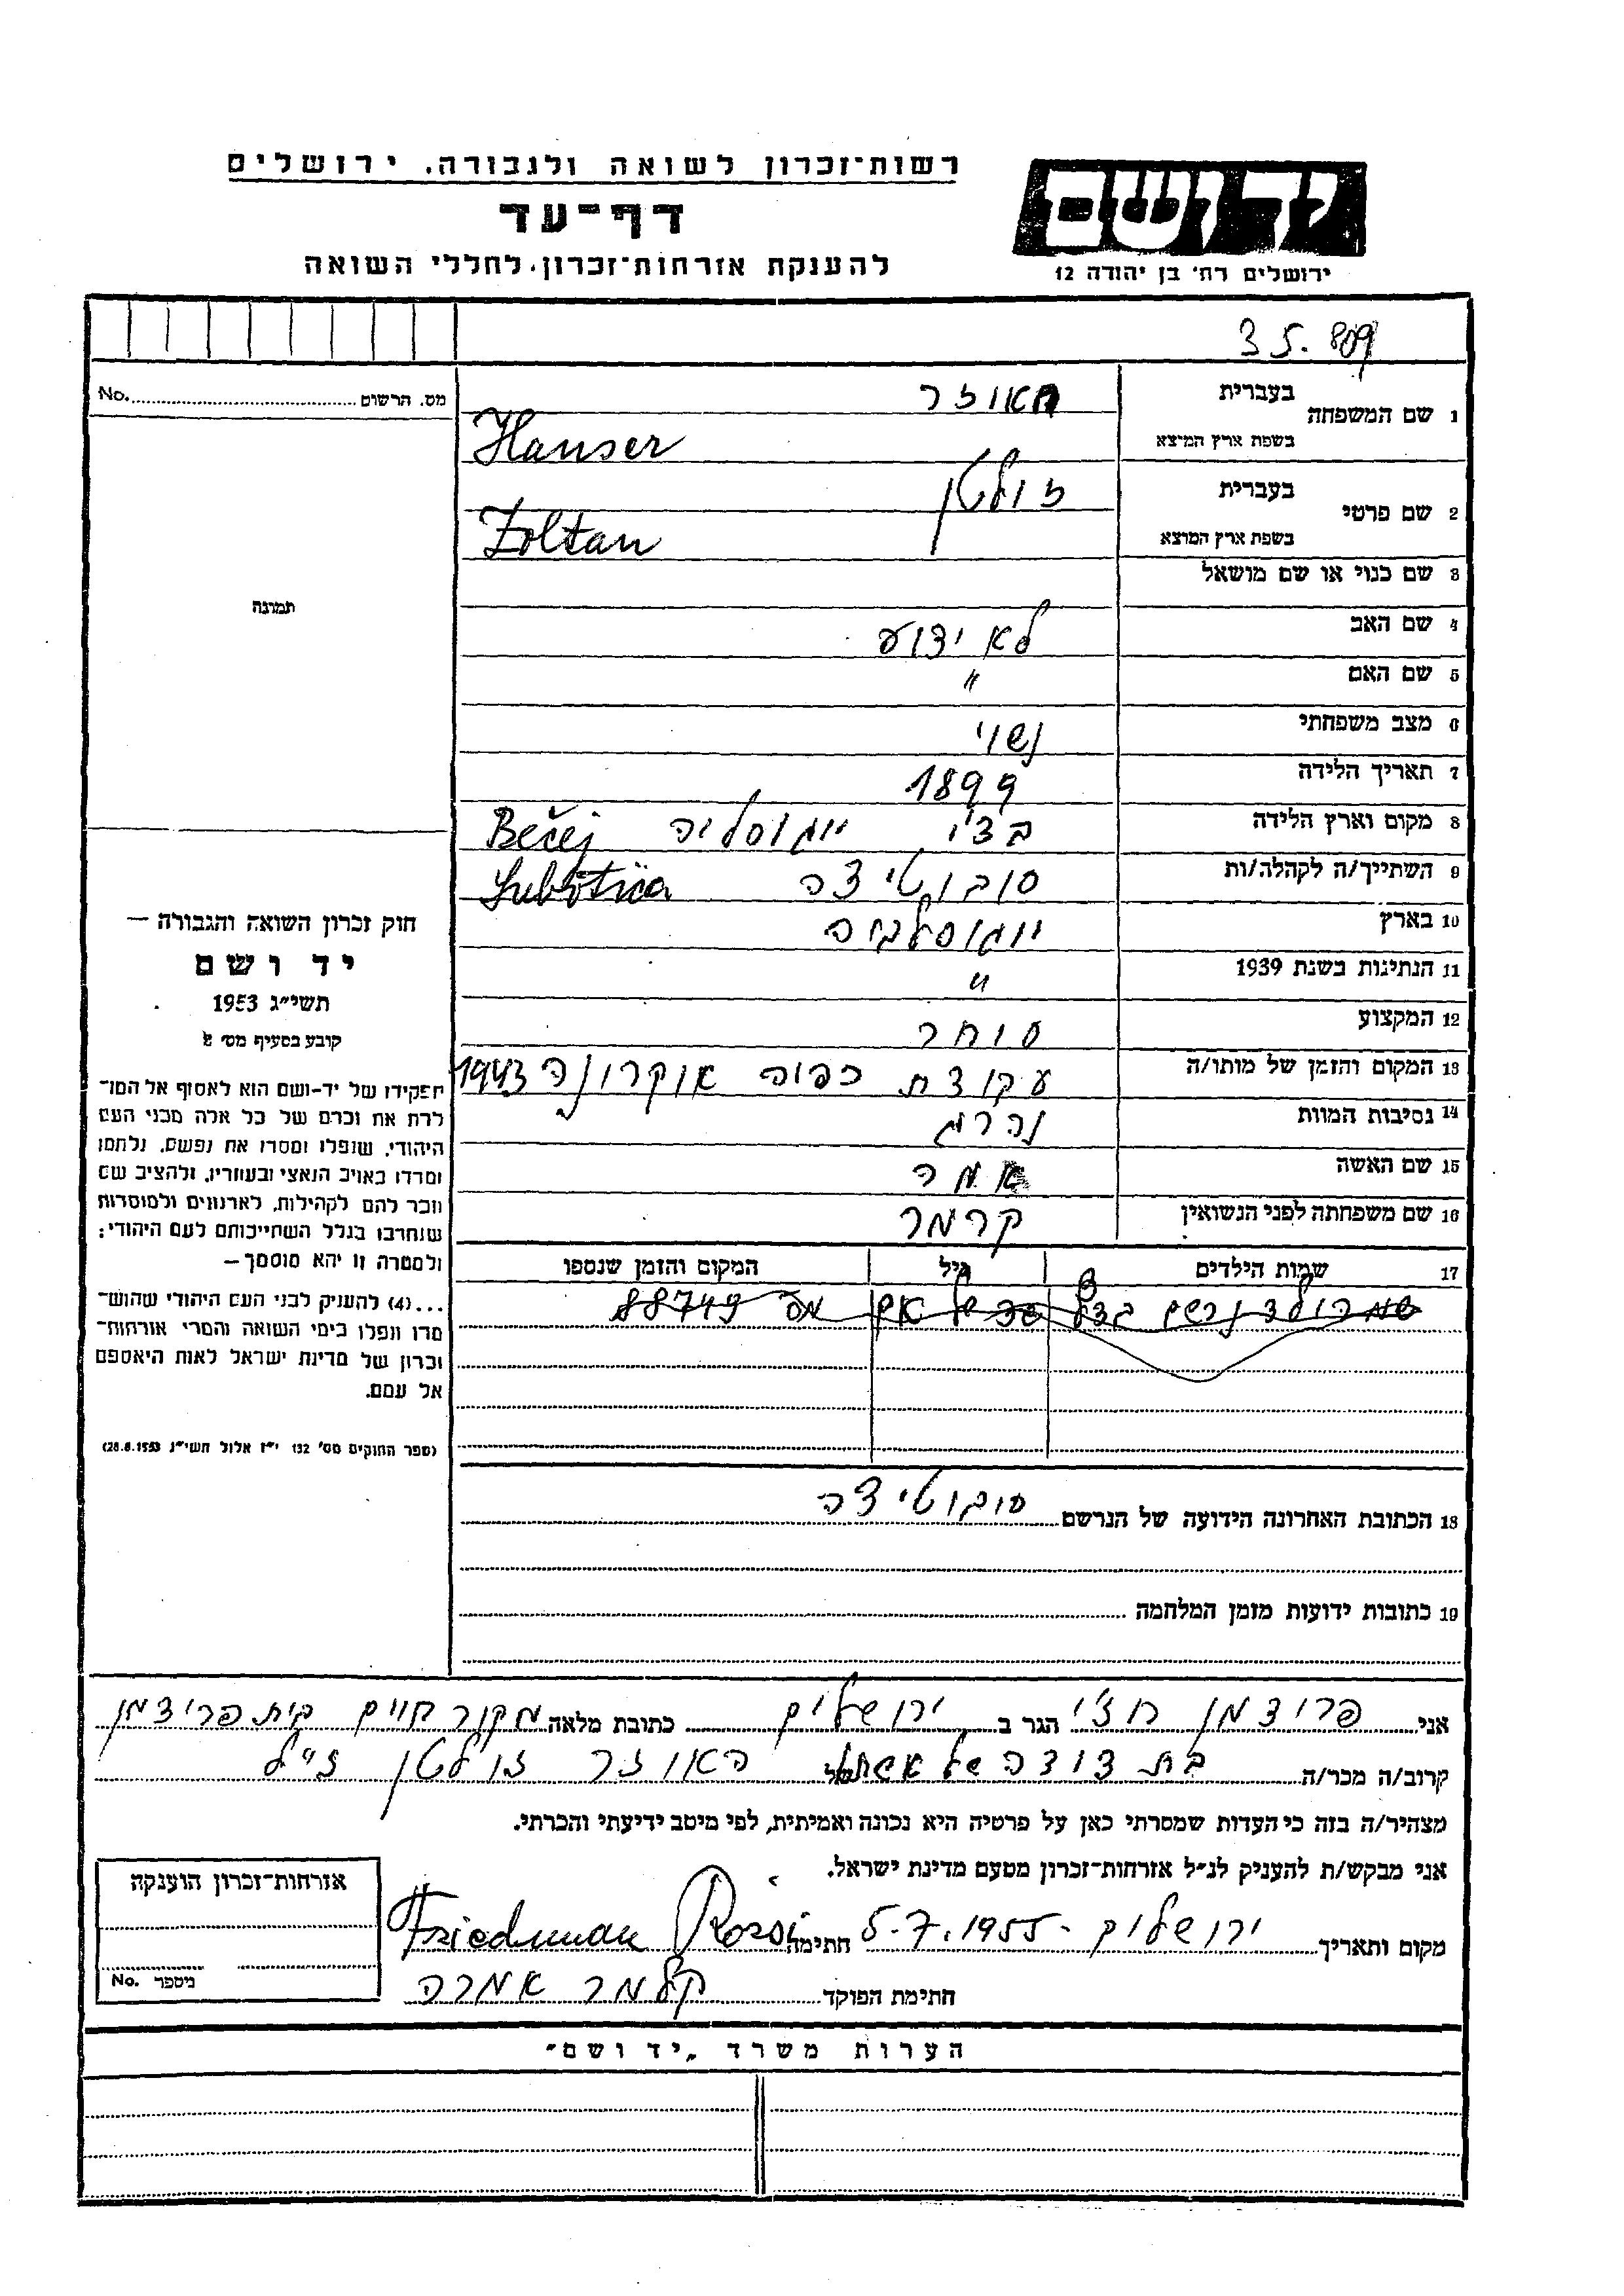 רשות־זכרון לשואה ולגבורה, ירושלים
דף־עד
להענקת אזרחות־זכרון לחללי השואה
יד ושם
ירושלים רח׳ בן יהודה 12
35.809
מס. הרשום No.
תמונה
חוק זכרון השואה והגבורה —
יד ושם
תשי״ג 1953
קובע בסעיף מס׳ 2
תפקידו של יד-ושם הוא לאסוף אל המו־
לדת את זכרם של כל אלה מבני העם
היהודי, שנפלו ומסרו את נפשם, נלחמו
ומרדו באויב הנאצי ובעוזריו, ולהציב שם
וזכר להם לקהילות, לארגונים ולמוסדות
שנחרבו בגלל השתייכותם לעם היהודי;
ולמטרה זו יהא מוסמך —
...(4) להעניק לבני העם היהודי שהוש־
מדו ונפלו בימי השואה והמרי אזרחות־
זכרון של מדינת ישראל לאות היאספם
אל עמם.
(ספר החוקים מס׳ 132 י״ז אלול תשי״ג 28.8.1953)
1 שם המשפחה בעברית האוזר
בשפת ארץ המוצא Hauser
2 שם פרטי בעברית זולטן
בשפת ארץ המוצא Zoltan
3 שם כנוי או שם מושאל
4 שם האב לא ידוע
5 שם האם "
6 מצב משפחתי נשוי
7 תאריך הלידה 1899
8 מקום וארץ הלידה בצ'י יוגוסליה Bečej
9 השתייך/ה לקהלה/ות סובוטיצה Subotica
10 בארץ יוגוסלביה
11 הנתינות בשנת 1939 "
12 המקצוע סוחר
13 המקום והזמן של מותו/ה עבודת כפיה אוקרינה 1943
14 נסיבות המוות נהרג
15 שם האשה אמה
16 שם משפחתה לפני הנשואין קרמר
17 שמות הילדים גיל המקום והזמן שנספו
שם הילד נרשם בדף של אם מס 88749
18 הכתובת האחרונה הידועה של הנרשם סובוטיצה
19 כתובות ידועות מזמן המלחמה
אני פרידמן רוז'י הגר ב ירושלים כתובת מלאה מקור חיים בית פרידמן
קרוב/ה מכר/ה בת דודה של אשתו של האוזר זולטן ז"ל
מצהיר/ה בזה כי העדות שמסרתי כאן על פרטיה היא נכונה ואמיתית, לפי מיטב ידיעתי והכרתי.
אני מבקש/ת להעניק לנ״ל אזרחות־זכרון מטעם מדינת ישראל.
מקום ותאריך ירושלים - 5.7.1955 חתימה Friedman Rozsi
חתימת הפוקד קלמר אמרה
אזרחות־זכרון הוענקה
מיספר No.
הערות משרד „יד ושם״